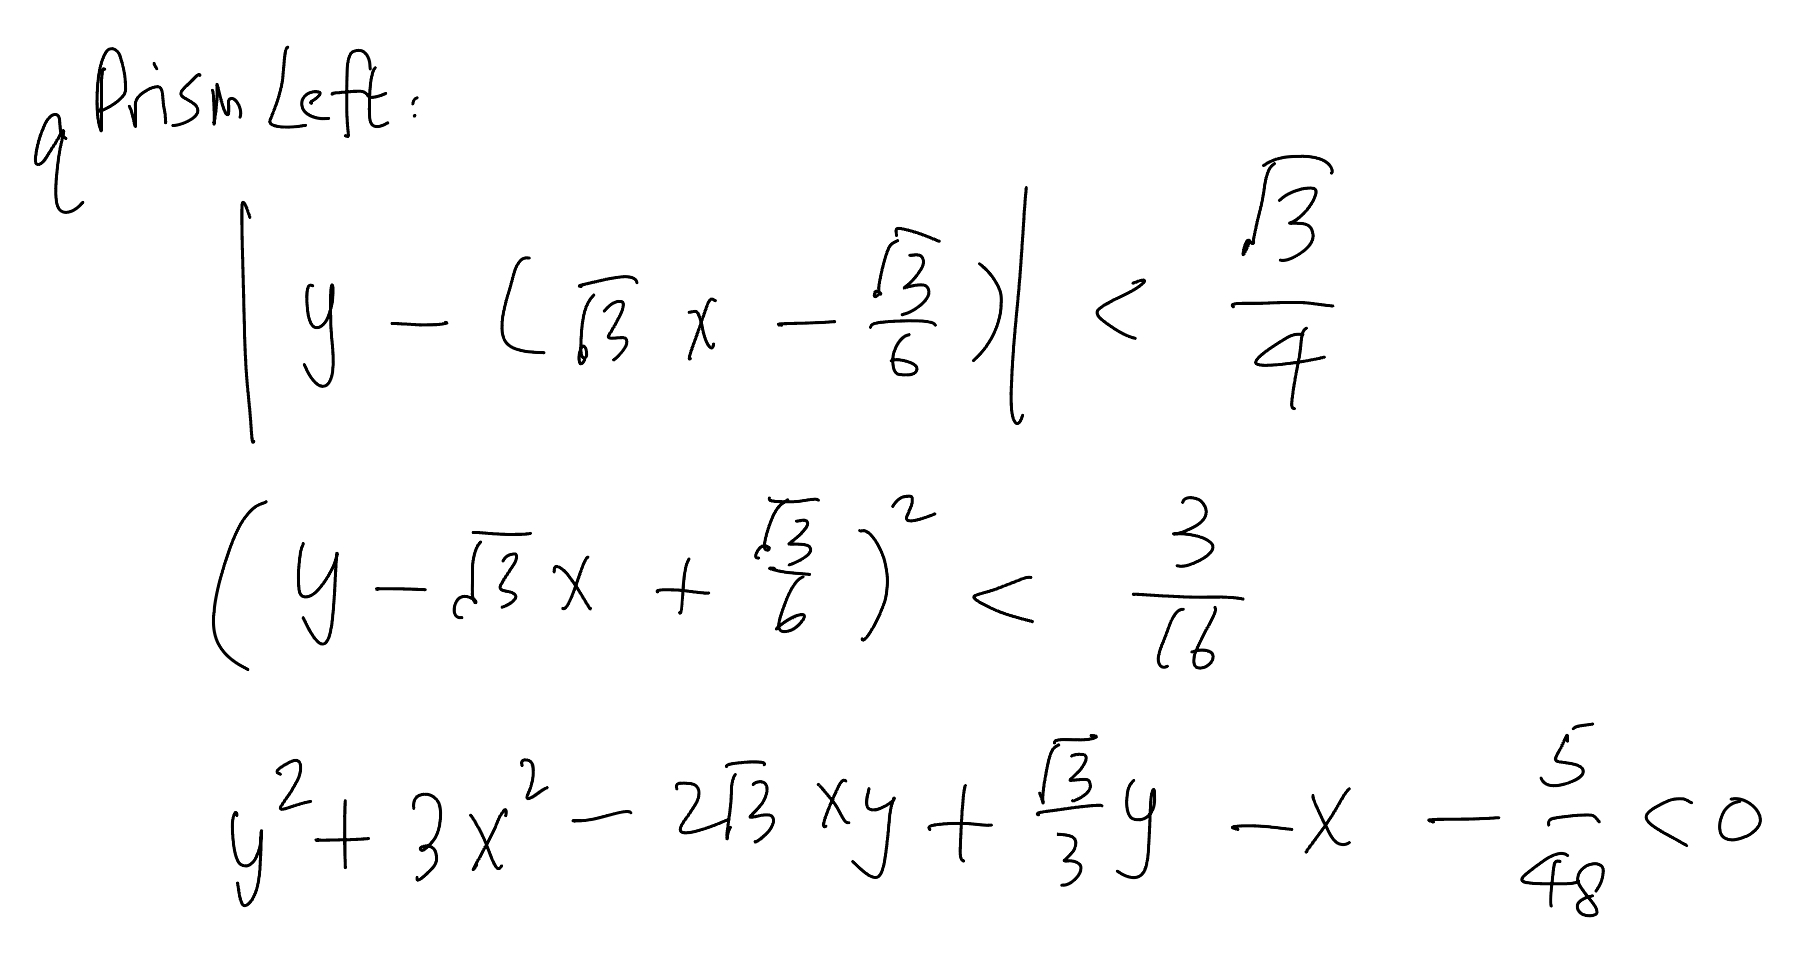 q Prism Left:
| y - (√3 x - √3/6) | < √3/4
(y - √3 x + √3/6)² < 3/16
y² + 3x² - 2√3 xy + √3/3 y - x - 5/48 < 0